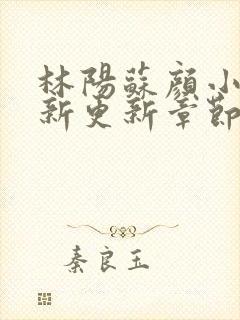 林陽蘇顔小
新更新章節
秦良玉